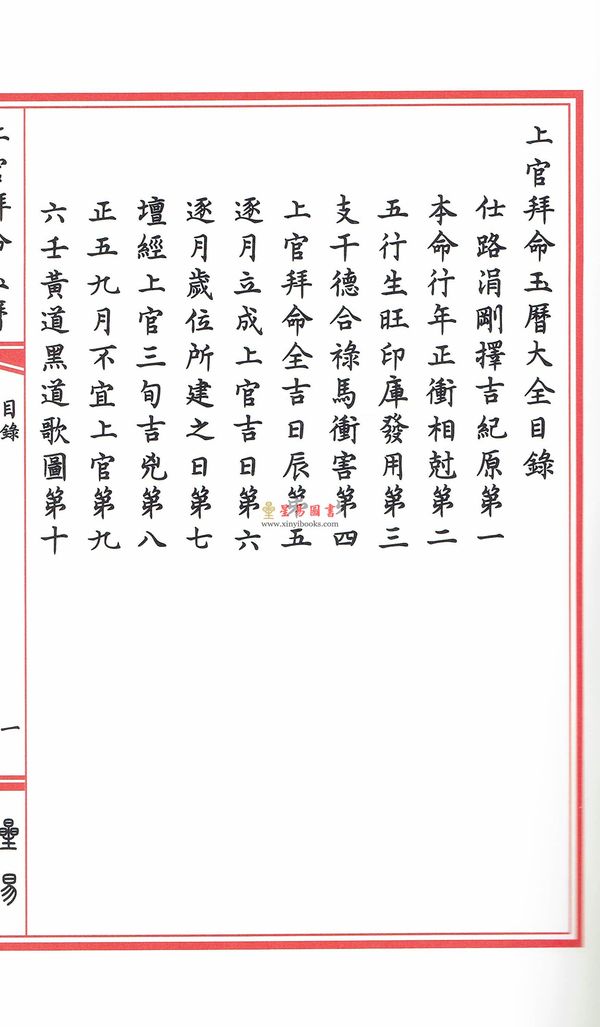 上官拜命玉曆大全目錄
仕路涓剛擇吉紀原第一
本命行年正衝相尅第二
五行生旺印庫發用第三
支干德合祿馬衝害第四
上官拜命全吉日辰第五
逐月立成上官吉日第六
逐月歲位所建之日第七
壇經上官三旬吉兇第八
正五九月不宜上官第九
六壬黃道黑道歌圖第十
目錄
一
星易
星易圖書
www.xinyibooks.com